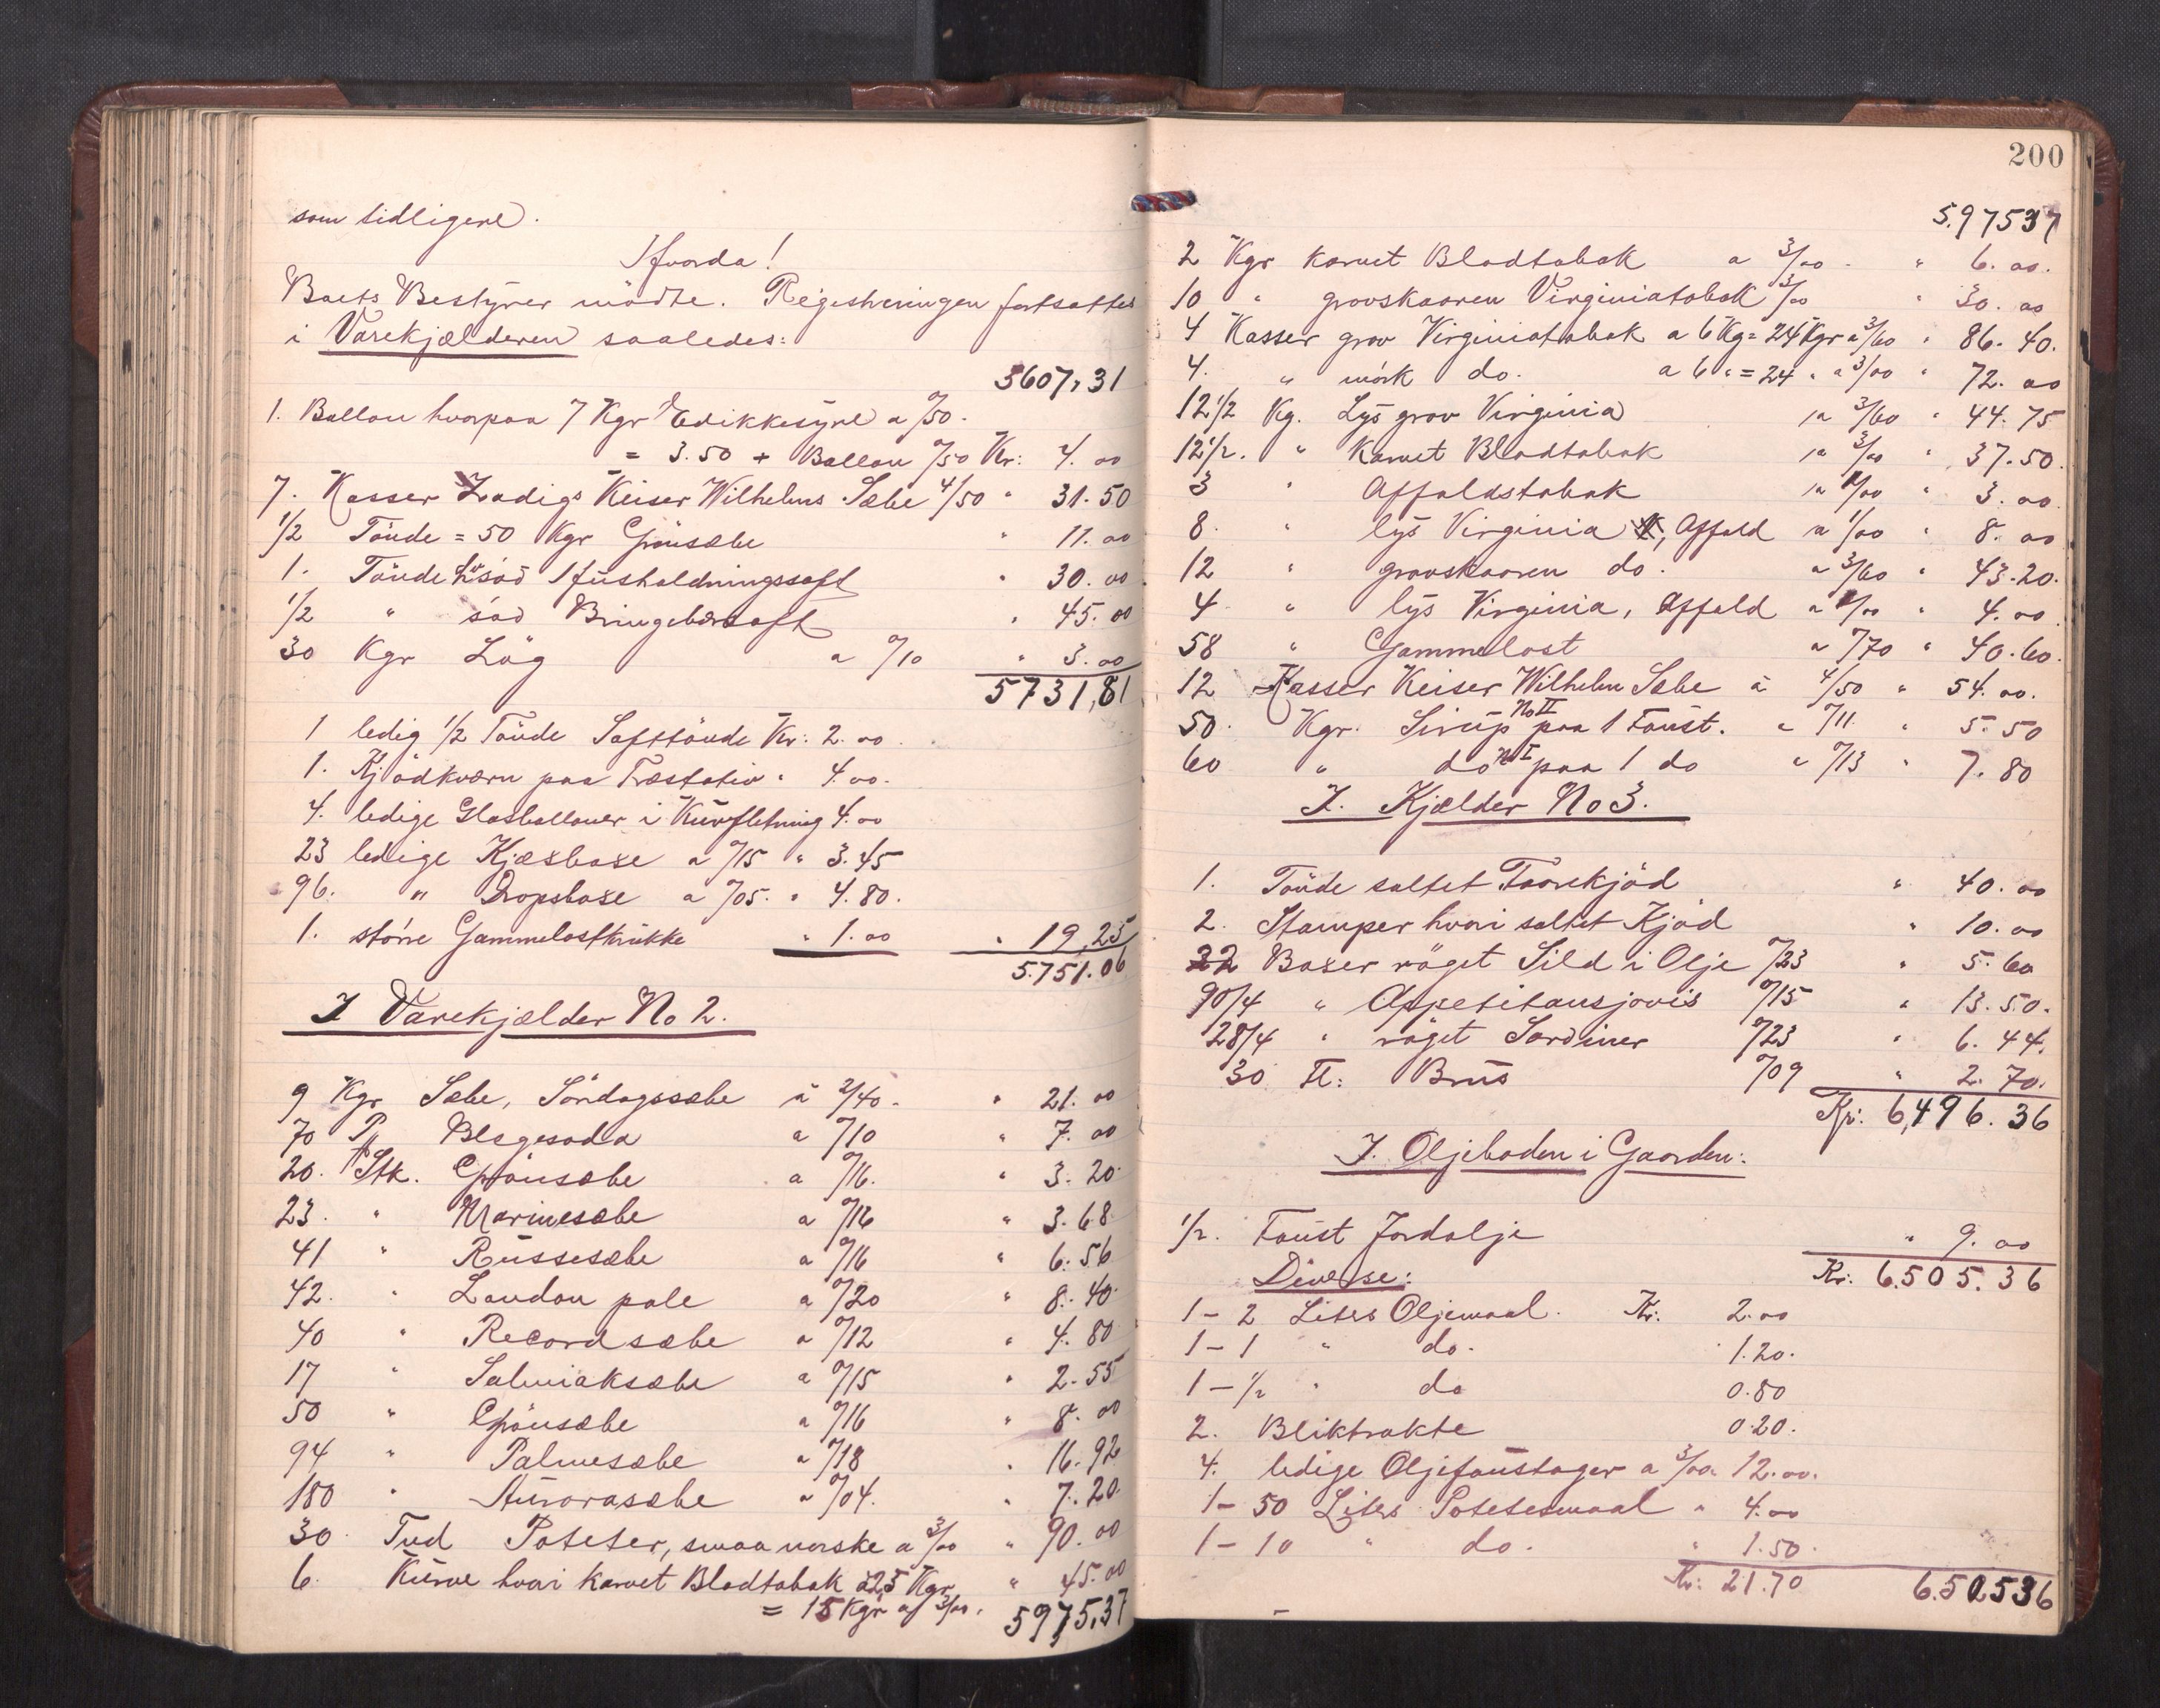 som tidligere.
Hvorda!
Boets Bestyrer mödte. Registreringen fortsattes
i Varekjælderen saaledes:
5607,31
1. Ballon hvorpaa 7 Kgr Edikkesyre a 0/50.
= 3.50 + Ballon 0/50 Kr: 4.00
7. Kasser Zadigs Keiser Wilhelms Sæbe 4/50 " 31.50
1/2 Tönde = 50 Kgr Grönsæbe " 11.00
1. Tönde h.söd Husholdningssaft " 30.00
1/2 " söd Bringebærsaft " 45.00
30 Kgr Lög a 0/10 " 3.00
5731,81
1 ledig 1/2 Tönde Safttönde Kr: 2.00
1. Kjödkværn paa Træstativ " 4.00.
4. ledige Glasballoner i Kurvfletning 4.00
23 ledige Kjæsbokse a 0/15 " 3.45
96. " Dropsbokse a 0/05. " 4.80.
1. större Gammelostkrukke " 1.00 " 19,25
5.751.06
I Varekjælder No 2.
9 Kgr Sæbe, Söndagssæbe a 2/40. " 21.00
70 P. Blegesoda a 0/10 " 7.00
20. Stk. Grönsæbe a 0/16. " 3.20
23. " Marinesæbe a 0/16 " 3.68
41 " Russesæbe a 0/16 " 6.56
42. " London pale a 0/20 " 8.40
40 " Recordsæbe a 0/12 " 4.80
17 " Salmiaksæbe a 0/15 " 2.55
50 " Grönsæbe a 0/16 " 8.00
94 " Palmesæbe a 0/18 " 16.92
180 " Aurorasæbe a 0/04. " 7.20
30 Tnd Poteter, smaa norske a 3/00 " 90.00
6. Kurve hvori karvet Bladtobak a 2,5 Kgr " 45.00
= 15 Kgr a 3/00. 5975,37
200
5.97537
2 Kgr karvet Bladtobak a 3/00 - " 6.00.
10 " grovskaaren Virginiatobak 3/00 " 30.00
4 Kasser grov Virginiatobak a 6 Kg = 24 Kgr a 3/60 " 86.40.
4. " mörk do. a 6 " = 24 " a 3/00 " 72.00
12 1/2 Kg. Lys grov Virginia a 3/60 " 44.75
12 1/2. " Karvet Bladtobak a 3/00 " 37.50.
3 " Affaldstobak a 1/00 " 3.00.
8. " lys Virginia, Affald a 1/00 " 8.00
12 " grovskaaren do. a 3/60 " 43.20.
4 " lys Virginia, Affald a 1/00 " 4.00
58 " Gammelost a 0/70 " 40.60.
12 Kasser Keiser Wilhelm Sæbe a 4/50 " 54.00.
50. Kgr. Sirup No II paa 1 Foust. a 0/11 " 5.50
60 " do No I paa 1 do a 0/13 " 7.80
I. Kjælder No 3.
1. Tönde saltet Faarekjöd " 40.00
2. Stamper hvori saltet Kjöd " 10.00
22 Bokser röget Sild i Olje 0/23 " 5.60
90/4 " Appetitansjovis 0/15 " 13.50.
28/4 " röget Sardiner 0/23 " 6.44.
30 Fl: Brus 0/09 " 2.70.
Kr: 6,496.36
I. Oljeboden i Gaarden:
1/2. Foust Jordolje " 9.00
Kr: 6.505.36
Diverse:
1 - 2 Liters Oljemaal. Kr: 2.00
1 - 1 " do. 1.20.
1 - 1/2 " do 0.80
2. Bliktrakte 0.20.
4. ledige Oljefoustager a 3/00. 12.00.
1 - 50 Liters Potetesmaal " 4.00
1 - 10 " do. " 1.50.
Kr: 21.70 6.50536